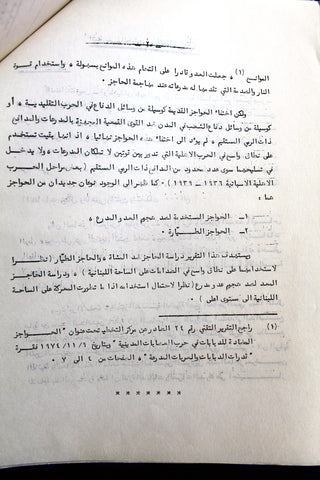 الموانع (1) ، جعلت العدو قادرا على اقتحام هذه الموانع بسهولة ، واستخدام قوة
النار والصدمة التي تقدمها له مدرعاته عند مهاجمة الحاجز .
ولكن اختفاء الحواجز القديمة كوسيلة من وسائل الدفاع في الحرب التقليدية ، أو
كوسيلة من وسائل دفاع الشعب في المدن ضد القوى القمعية المجهزة بالمدرعات والمدافع
ذات الرمي المستقيم ، لم يؤد الى اختفاء هذه الحواجز نهائيا ، اذ انها بقيت تستخدم
على نطاق واسع في الحرب الاهلية التي تدور بين قوتين لا تملكان المدرعات ، ولا يدخل
في تسليحهما سوى عدد محدود من المدافع ذات الرمي المستقيم (بعض مراحل الحرب
الاهلية الاسبانية 1936 - 1939) . كما ظهر الى الوجود نوعان جديدان من الحواجز
هما :
1ـ الحواجز المستخدمة لصد هجوم العدو المدرع .
2ـ الحواجز الطيارة .
ويستهدف هذا التقرير دراسة الحاجز ضد المشاة ، والحاجز الطيار (نظرا
لاستخدامهما على نطاق واسع في الصدامات على الساحة اللبنانية) ، ودراسة الحاجز
المعد لصد هجوم عدو مدرع (نظرا لاحتمال استخدامه اذا ما تطورت المعركة على الساحة
اللبنانية الى مستوى اعلى) .
(1) راجع التقرير التقني رقم 24 الصادر عن مركز التخطيط تحت عنوان "الحواجز
المضادة للدبابات في حرب العصابات المدينية" وبتاريخ 1974/11/6 فقرة
"قدرات الدبابات والعربات المدرعة" ، الصفحات من 4 الى 7 .
* * * * * * *